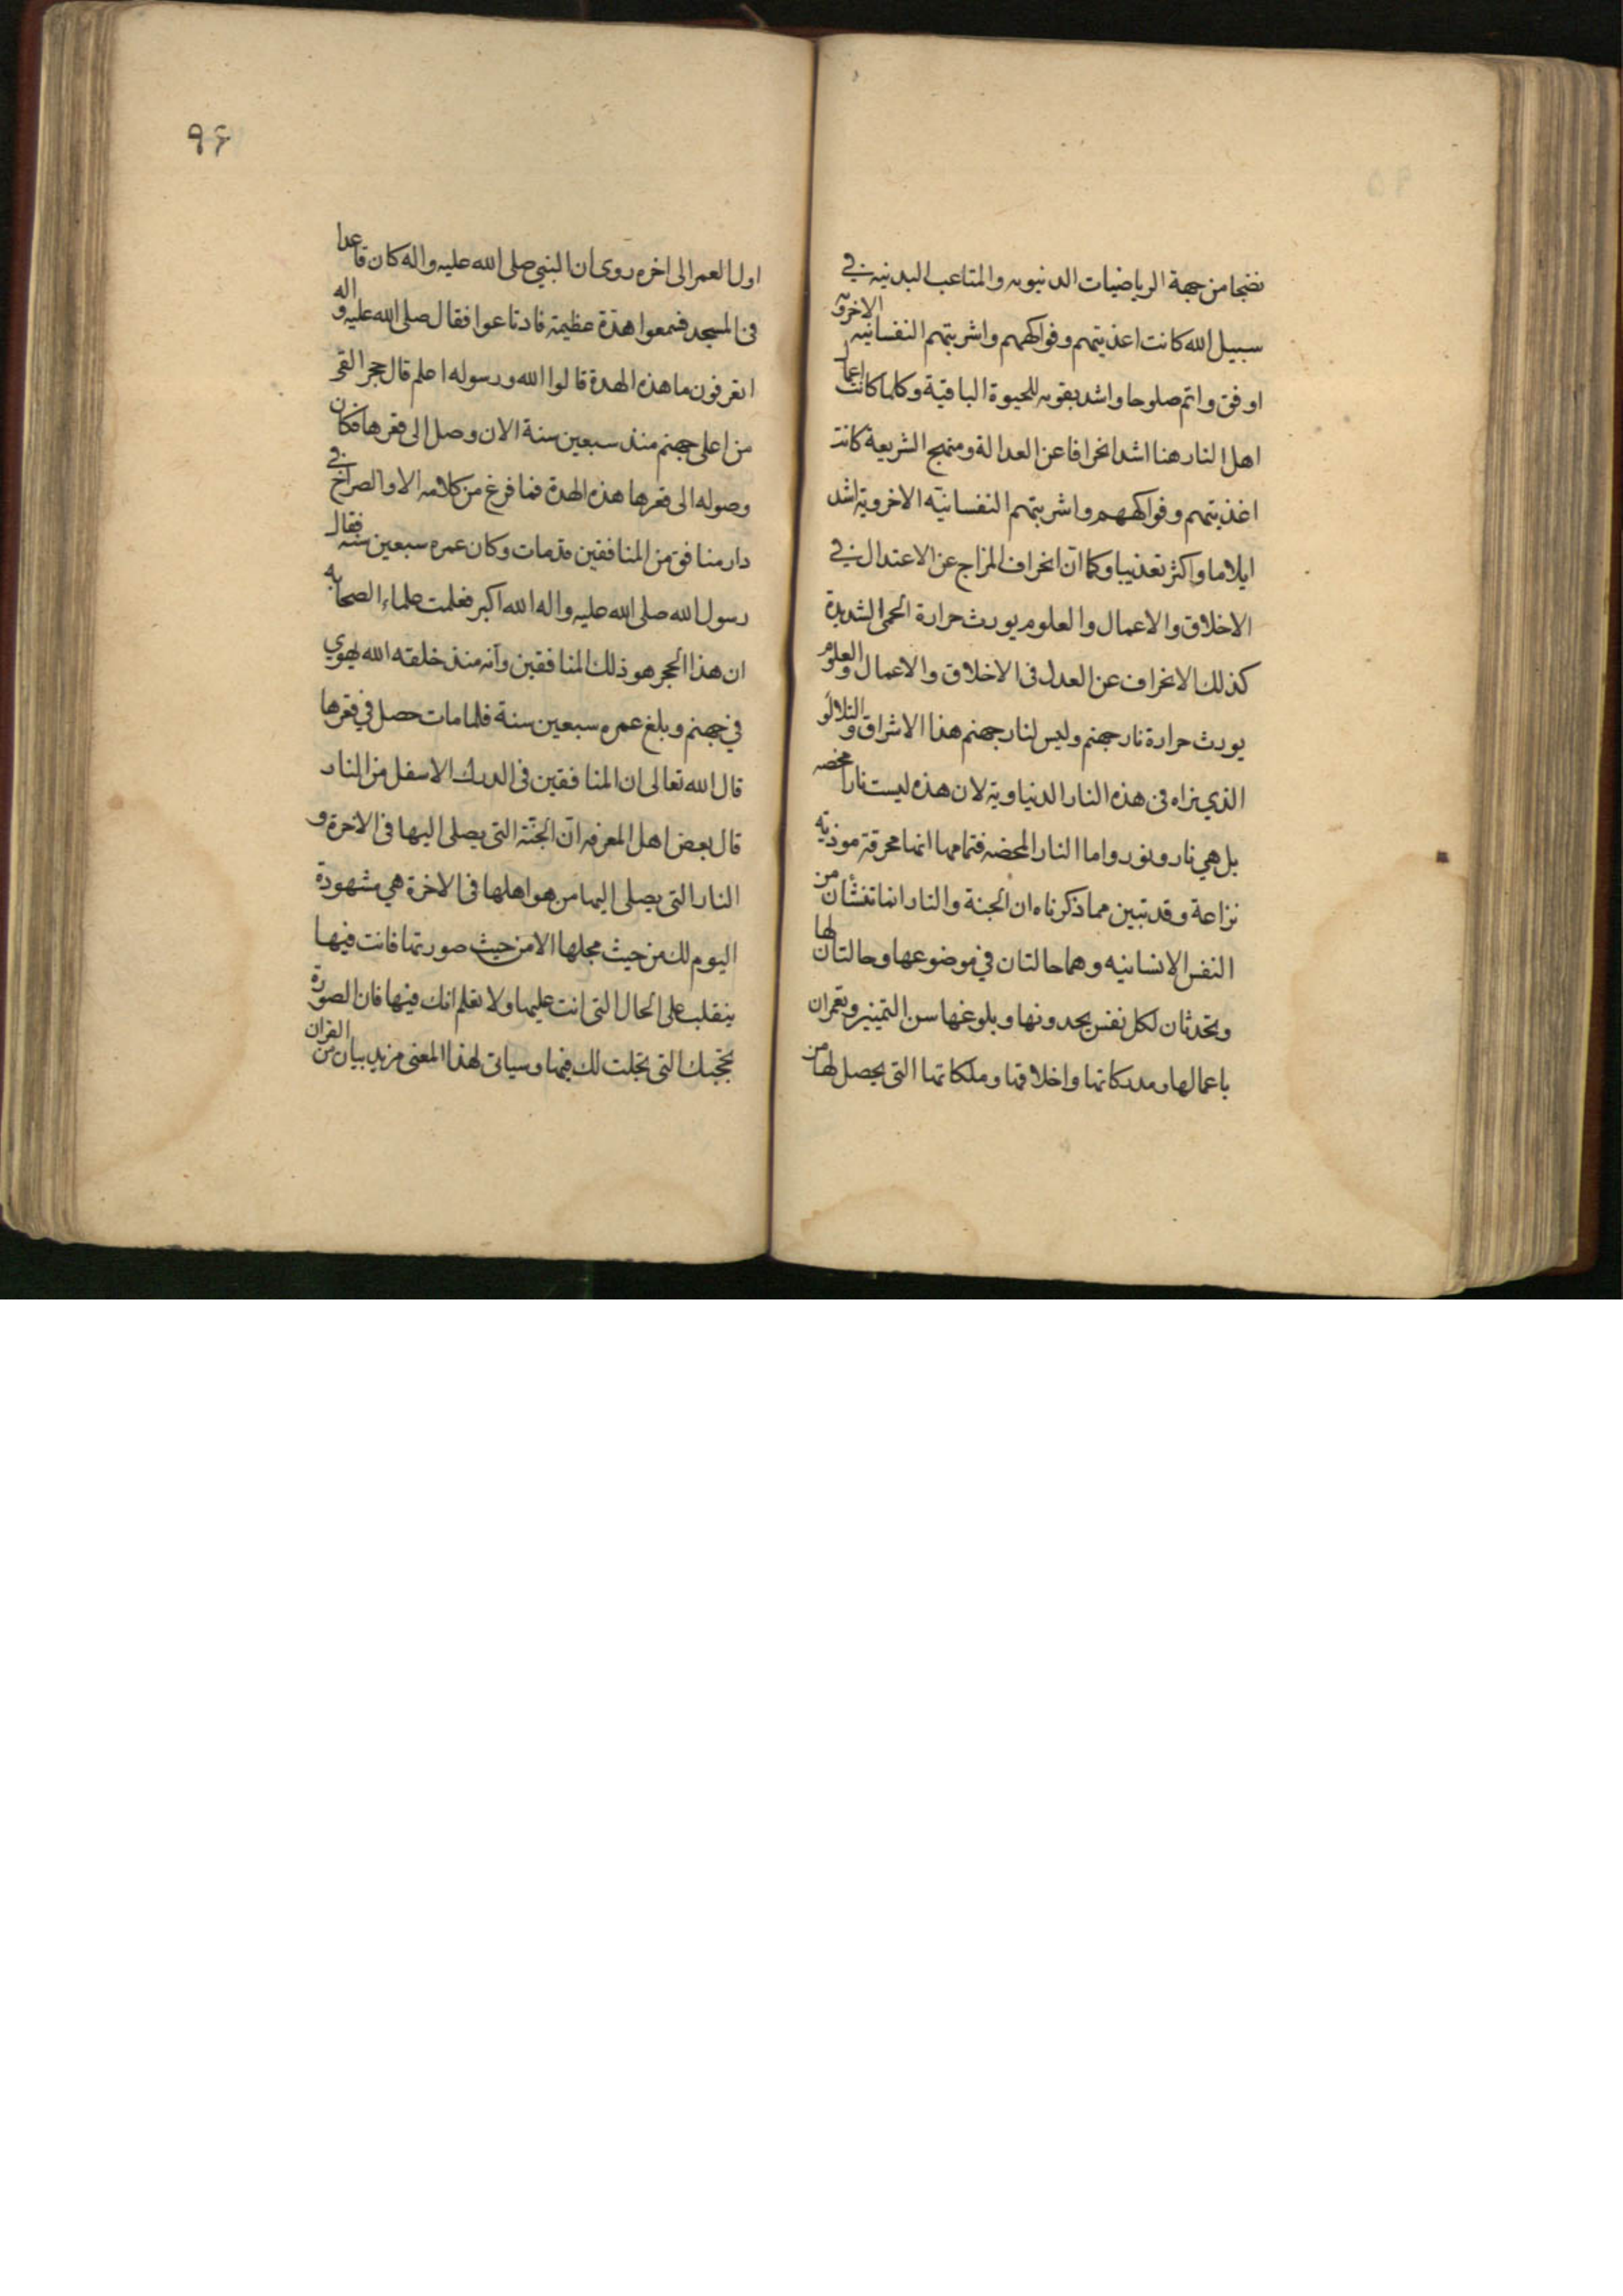 نضجا من جهة الرياضيات الدنيويه والمتاعب البدنيه في
سبيل الله كانت اغذيتهم وفواكههم واشربتهم النفسانيه الاخرويه
اوفق واتم صلوحا واشد تقويه للحيوة الباقية وكلما كانت اعمال
اهل النار هنا اشد انحرافا عن العدالة ومنهج الشريعة كانت
اغذيتهم وفواكههم واشربتهم النفسانيه الاخروية اشد
ايلاما واكثر تعذيبا وكما ان انحراف المزاج عن الاعتدال في
الاخلاق والاعمال والعلوم يورث حرارة الحمى الشديدة
كذلك الانحراف عن العدل في الاخلاق والاعمال والعلوم
يورث حرارة نار جهنم وليس لنار جهنم هذا الاشراق والتلالؤ
الذي نراه في هذه النار الدنياوية لان هذه ليست نارا محضه
بل هي نار ونور واما النار المحضه فتمامها انها محرقة موذية
نزاعة وقد تبين مما ذكرناه ان الجنة والنار انما تنشأن من
النفس الانسانيه وهما حالتان في موضوعها وحالتان لها
وتحدثان لكل نفس بحدوثها وبلوغها سن التمييز وتعمران
باعمالها ومدركاتها واخلاقها وملكاتها التي يحصل لها من
٩۶
اول العمر الى اخره روى ان النبي صلى الله عليه واله كان قاعدا
في المسجد فسمعوا هدة عظيمة فارتاعوا فقال صلى الله عليه واله
اتعرفون ما هذه الهدة قالوا الله ورسوله اعلم قال حجر القى
من اعلى جهنم منذ سبعين سنة الان وصل الى قعرها فكان
وصوله الى قعرها هذه الهدة فما فرغ من كلامه الا والصراخ في
دار منافق من المنافقين قد مات وكان عمره سبعين سنه فقال
رسول الله صلى الله عليه واله الله اكبر فعلمت علماء الصحابه
ان هذا الحجر هو ذلك المنافقين وانه منذ خلقه الله يهوي
في جهنم وبلغ عمره سبعين سنة فلما مات حصل في قعرها
قال الله تعالى ان المنافقين في الدرك الاسفل من النار
قال بعض اهل المعرفه ان الجنّة التي يصلى اليها في الاخرة و
النار التي يصلى اليها من هو اهلها في الاخرة هي مشهودة
اليوم لك من حيث محلها الا من حيث صورتها فانت فيها
ينقلب على الحال التي انت عليها ولا تعلم انك فيها فان الصورة
تحجبك التي تجلت لك فيها وسياتى لهذا المعنى مزيد بيان من القران